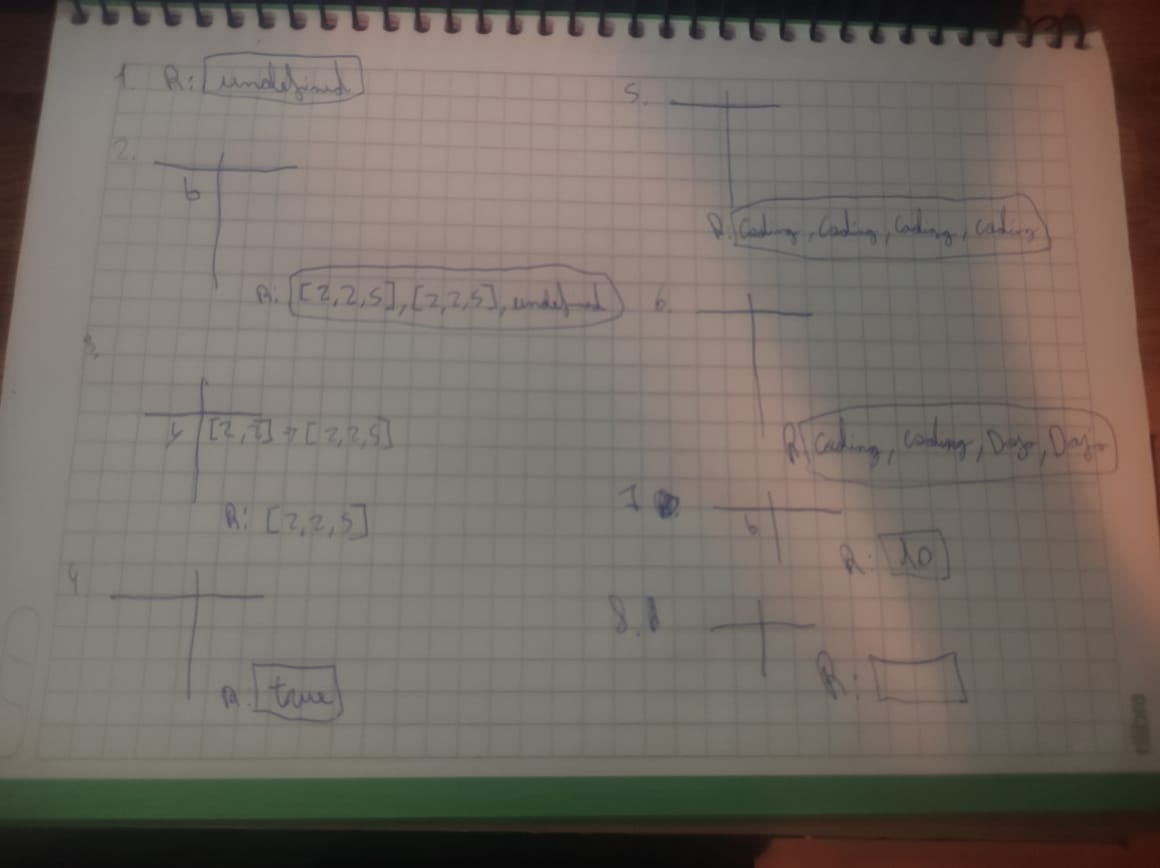 1. R: undefined
2.
b
R: [2,2,5],[2,2,5], undefined
3.
y [2,2] → [2,2,5]
R: [2,2,5]
4
R: true
5.
R: Coding, Coding, Coding, Coding
6.
R: Coding, Coding, Dojo, Dojo
7
b
R: 10
8.
R: